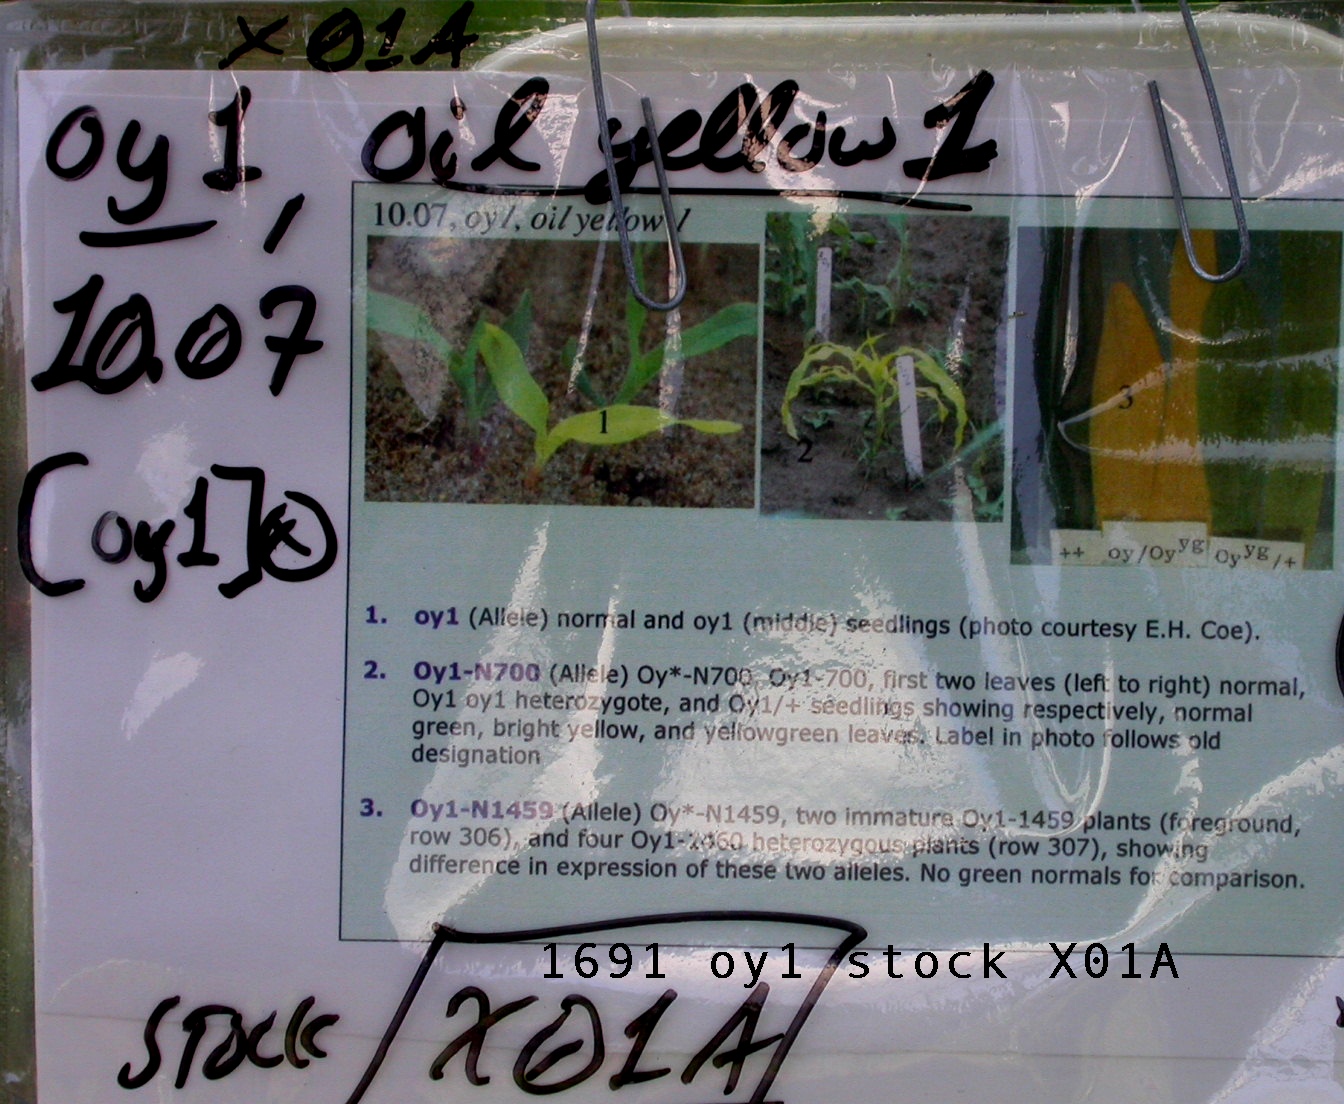 X01A
oy1, oil yellow 1
10.07
[oy1]ⓧ
10.07, oy1, oil yellow 1
1
2
3
++ oy/Oy^yg Oy^yg/+
1. oy1 (Allele) normal and oy1 (middle) seedlings (photo courtesy E.H. Coe).
2. Oy1-N700 (Allele) Oy*-N700, Oy1-700, first two leaves (left to right) normal,
Oy1 oy1 heterozygote, and Oy1/+ seedlings showing respectively, normal
green, bright yellow, and yellowgreen leaves. Label in photo follows old
designation
3. Oy1-N1459 (Allele) Oy*-N1459, two immature Oy1-1459 plants (foreground,
row 306), and four Oy1-1460 heterozygous plants (row 307), showing
difference in expression of these two alleles. No green normals for comparison.
1691 oy1 stock X01A
STOCK X01A